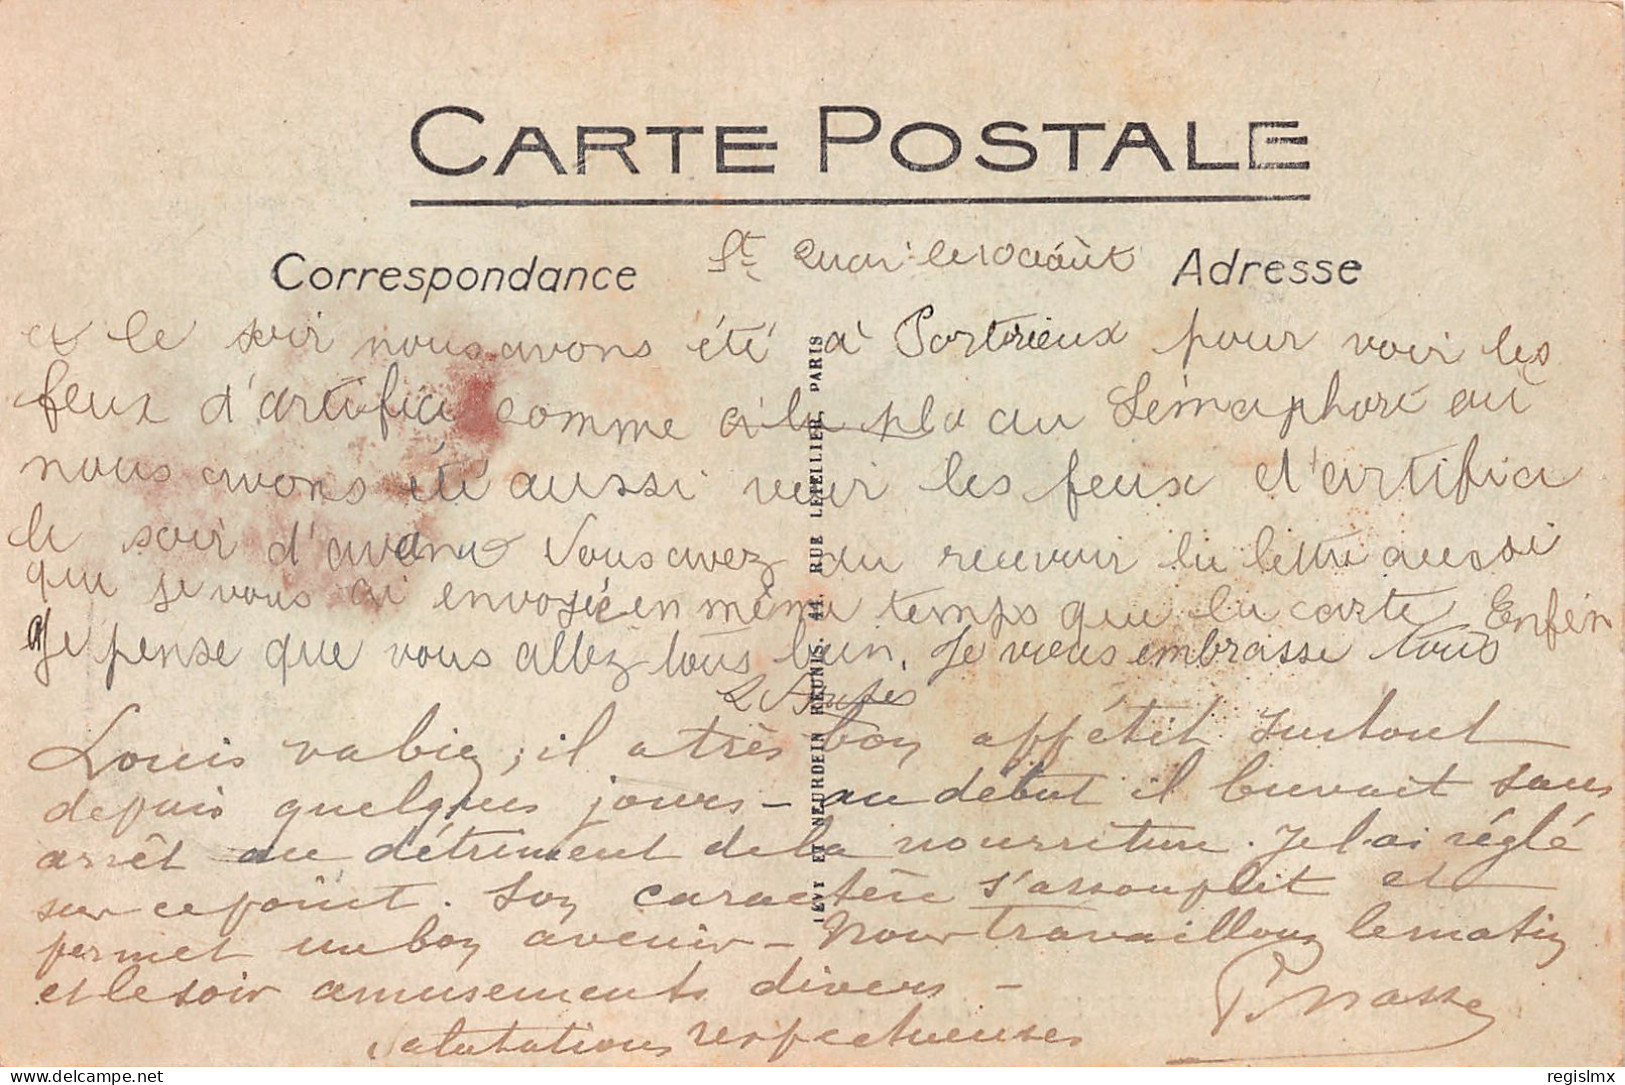 CARTE POSTALE
Correspondance
St Quai le 10 août
Adresse
et le soir nous avons été à Portrieux pour voir les
feux d'artifici comme à la pla au Sémaphore où
nous avons été aussi voir les feux d'artifici
le soir d'avant Vous avez du recevoir la lettre aussi
que je vous ai envoyée en même temps que la carte Enfin
Je pense que vous allez tous bien. Je vous embrasse tous
Louis va bien ; il a très bon appétit surtout
depuis quelques jours – au début il buvait sans
arrêt au détriment de la nourriture. Je l'ai réglé
sur ce point. Son caractère s'assouplit et
permet un bon avenir – Nous travaillons le matin
et le soir amusements divers –
Salutations respectueuses
P. Masse
LEVY ET NEURDEIN REUNIS. 44. RUE LETELLIER. PARIS
delcampe.net
regislmx